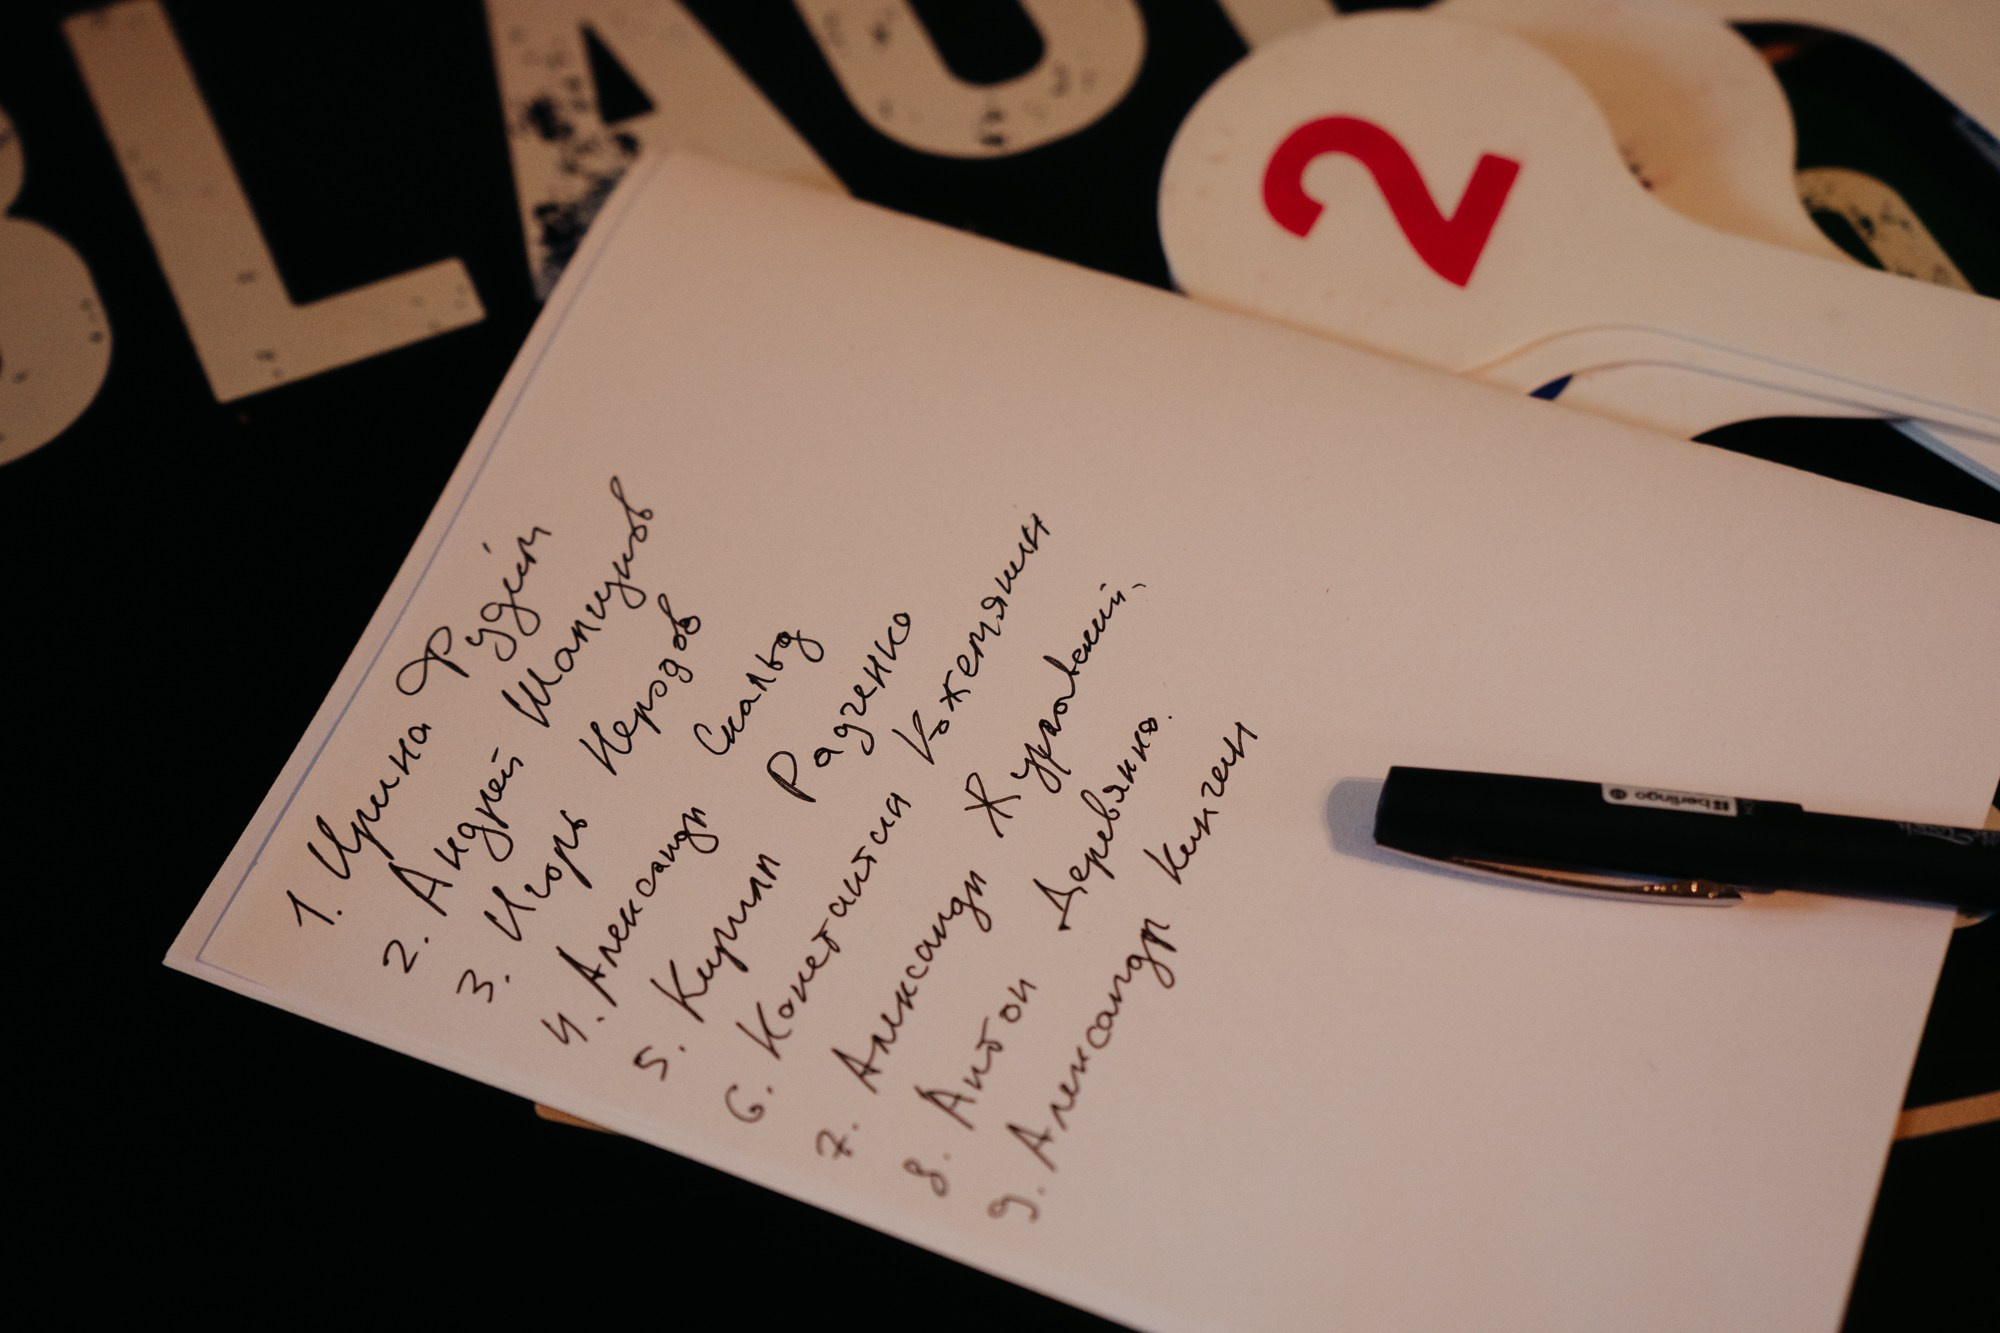 BLAU
2
1. Ирина
2. Андрей Шапкунов
3. Игорь Неродов
4. Александр Скальд
5. Кирилл Радченко
6. Константин Кожемякин
7. Александр Журковский
8. Антон Деревянко.
9. Александр Кинчен
berlingo